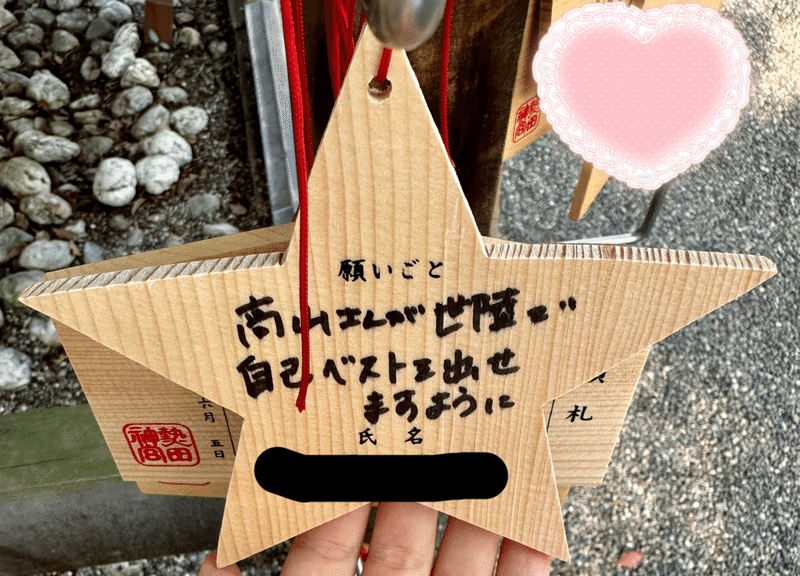 願いごと
高山さんが世陸で
自己ベストを出せ
ますように
氏名
六月 五日
札
熱田
神宮